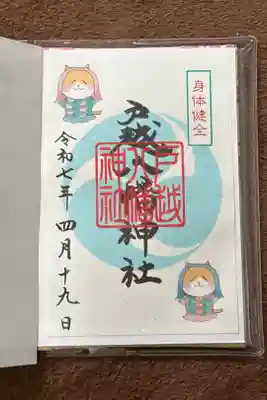 身体健全
戸越八幡神社
戸越八幡神社
令和七年 四月十九日